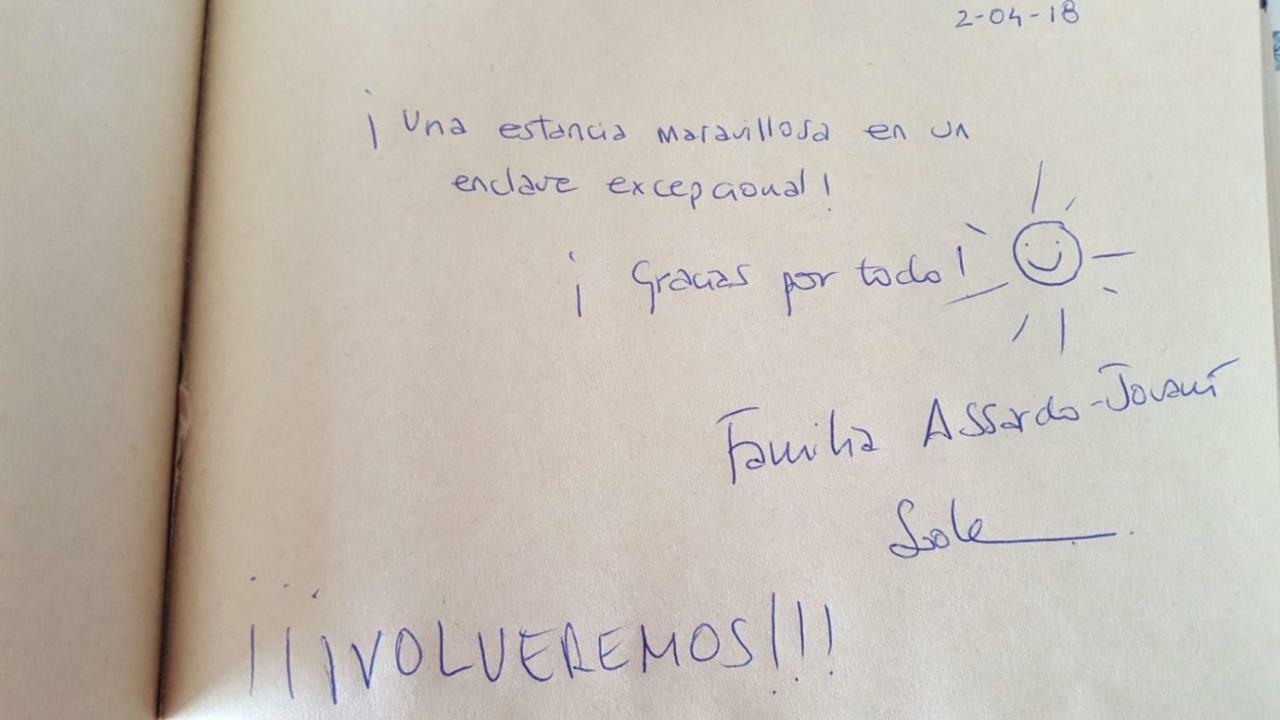 2-04-18
¡Una estancia maravillosa en un
enclave excepcional!
¡Gracias por todo!
Familia Assardo-Jovaní
Sole
¡¡¡VOLVEREMOS!!!